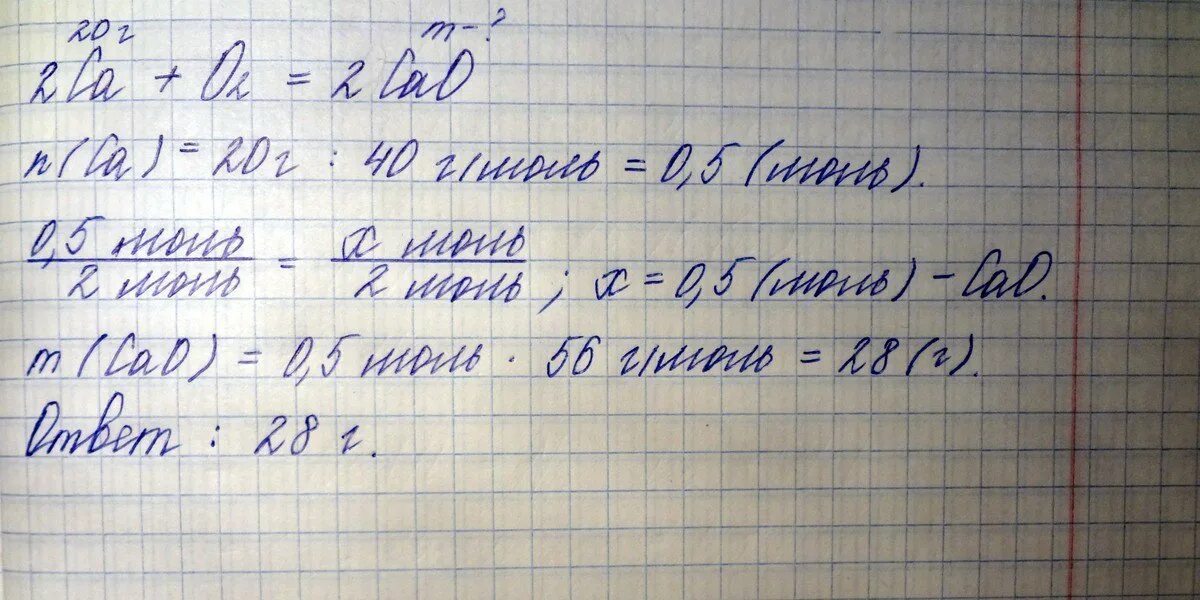 20 г m - ?
2Ca + O2 = 2CaO
n(Ca) = 20 г : 40 г/моль = 0,5 (моль).
0,5 моль / 2 моль = x моль / 2 моль ; x = 0,5 (моль) - CaO.
m (CaO) = 0,5 моль · 56 г/моль = 28 (г).
Ответ : 28 г.